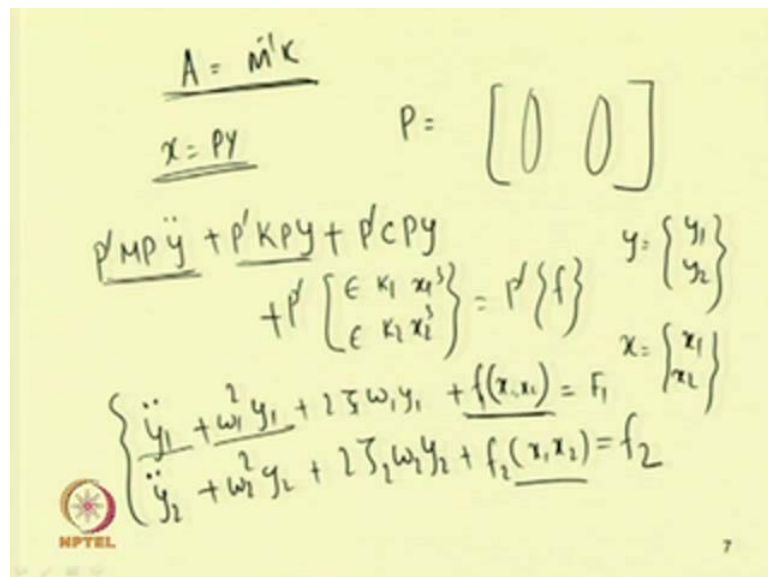 A = M⁻¹K
x = Py
P = [ ]
P'MPÿ + P'KPy + P'CPy
+ P' [ ϵ K₁ x₁³
ϵ K₂ x₂³ } = P' {f}
y = { y₁
y₂ }
x = { x₁
x₂ }
ÿ₁ + ω₁² y₁ + 2ζω₁y₁ + f(x₁x₂) = F₁
ÿ₂ + ω₂² y₂ + 2ζ₂ω₂y₂ + f₂(x₁x₂) = f₂
NPTEL
7